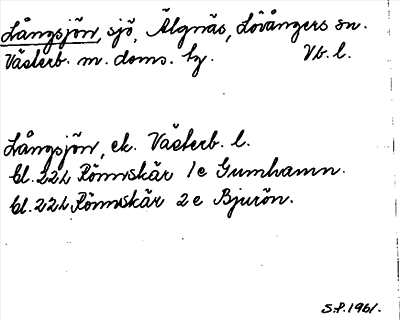 Långsjön, sjö, Älgnäs, Lövångers sn.
Västerb. m. doms. hg. Vb. l.
Långsjön, ek. Västerb. l.
bl. 22L Rönnskär 1e Gumhamn.
bl. 22L Rönnskär 2e Bjurön.
S.P. 1961.